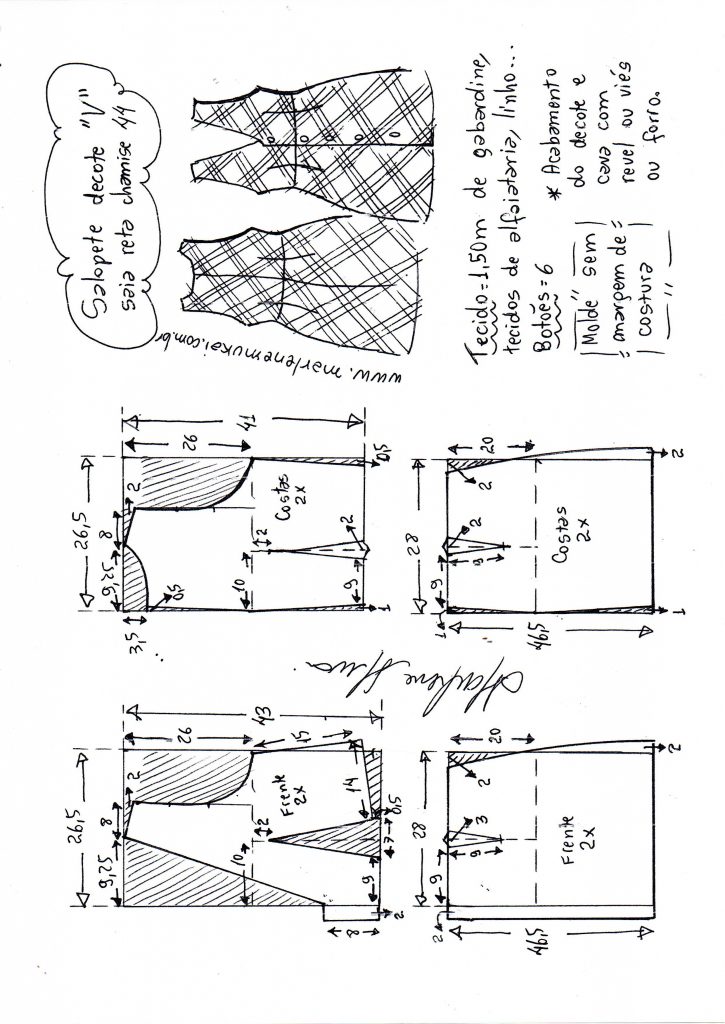 Salopete decote "V"
saia reta chamise 44
www.marlenemukai.com.br
Tecido = 1,50m de gabardine,
tecidos de alfaiataria, linho...
Botões = 6
* Acabamento
do decote e
cava com
revel ou viés
ou forro.
Molde sem
margem de
costura
41
26
26,5
9,25
8
2
3,5
0,5
Costas
2x
10
2
2
9
1
0,5
28
20
9
9
2
2
1
Costas
2x
46,5
1
2
43
26
26,5
9,25
8
2
15
14
Frente
2x
10
2
9
7
0,5
8
2
28
20
9
9
3
2
2
Frente
2x
46,5
2